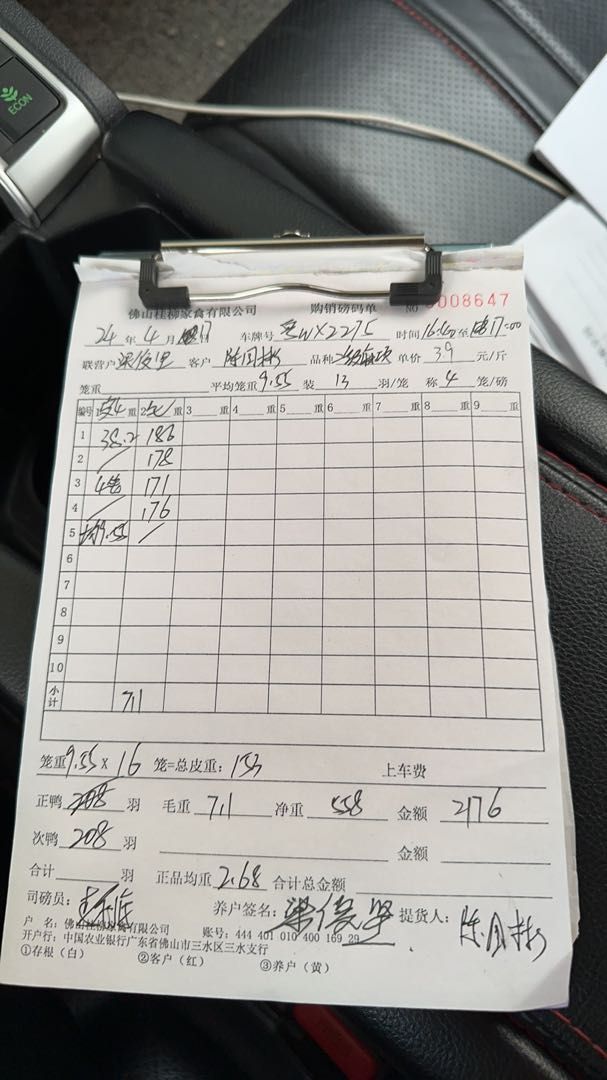 ECON
佛山桂柳家禽有限公司 购销磅码单 NO 0008647
24 年 4 月 17 车牌号 WX227C 时间 至 17:00
联营户 客户 陈国彬 品种 单价 3.9 元/斤
笼重 平均笼重 9.55 装 13 羽/笼 称 4 笼/磅
编号 皮4 重 2 重 3 重 4 重 5 重 6 重 7 重 8 重 9 重
1 38.2 186
2 178
3 4笼 171
4 176
5 均9.55
6
7
8
9
10
小计 711
笼重 9.55 X 16 笼=总皮重: 153 上车费
正鸭 208 羽 毛重 711 净重 558 金额 2176
次鸭 208 羽 金额
合计 羽 正品均重 2.68 合计总金额
司磅员: 养户签名: 梁俊坚 提货人: 陈国彬
户 名: 佛山桂柳家禽有限公司 账号: 444 401 010 400 169 29
开户行: 中国农业银行广东省佛山市三水区三水支行
①存根（白） ②客户（红） ③养户（黄）